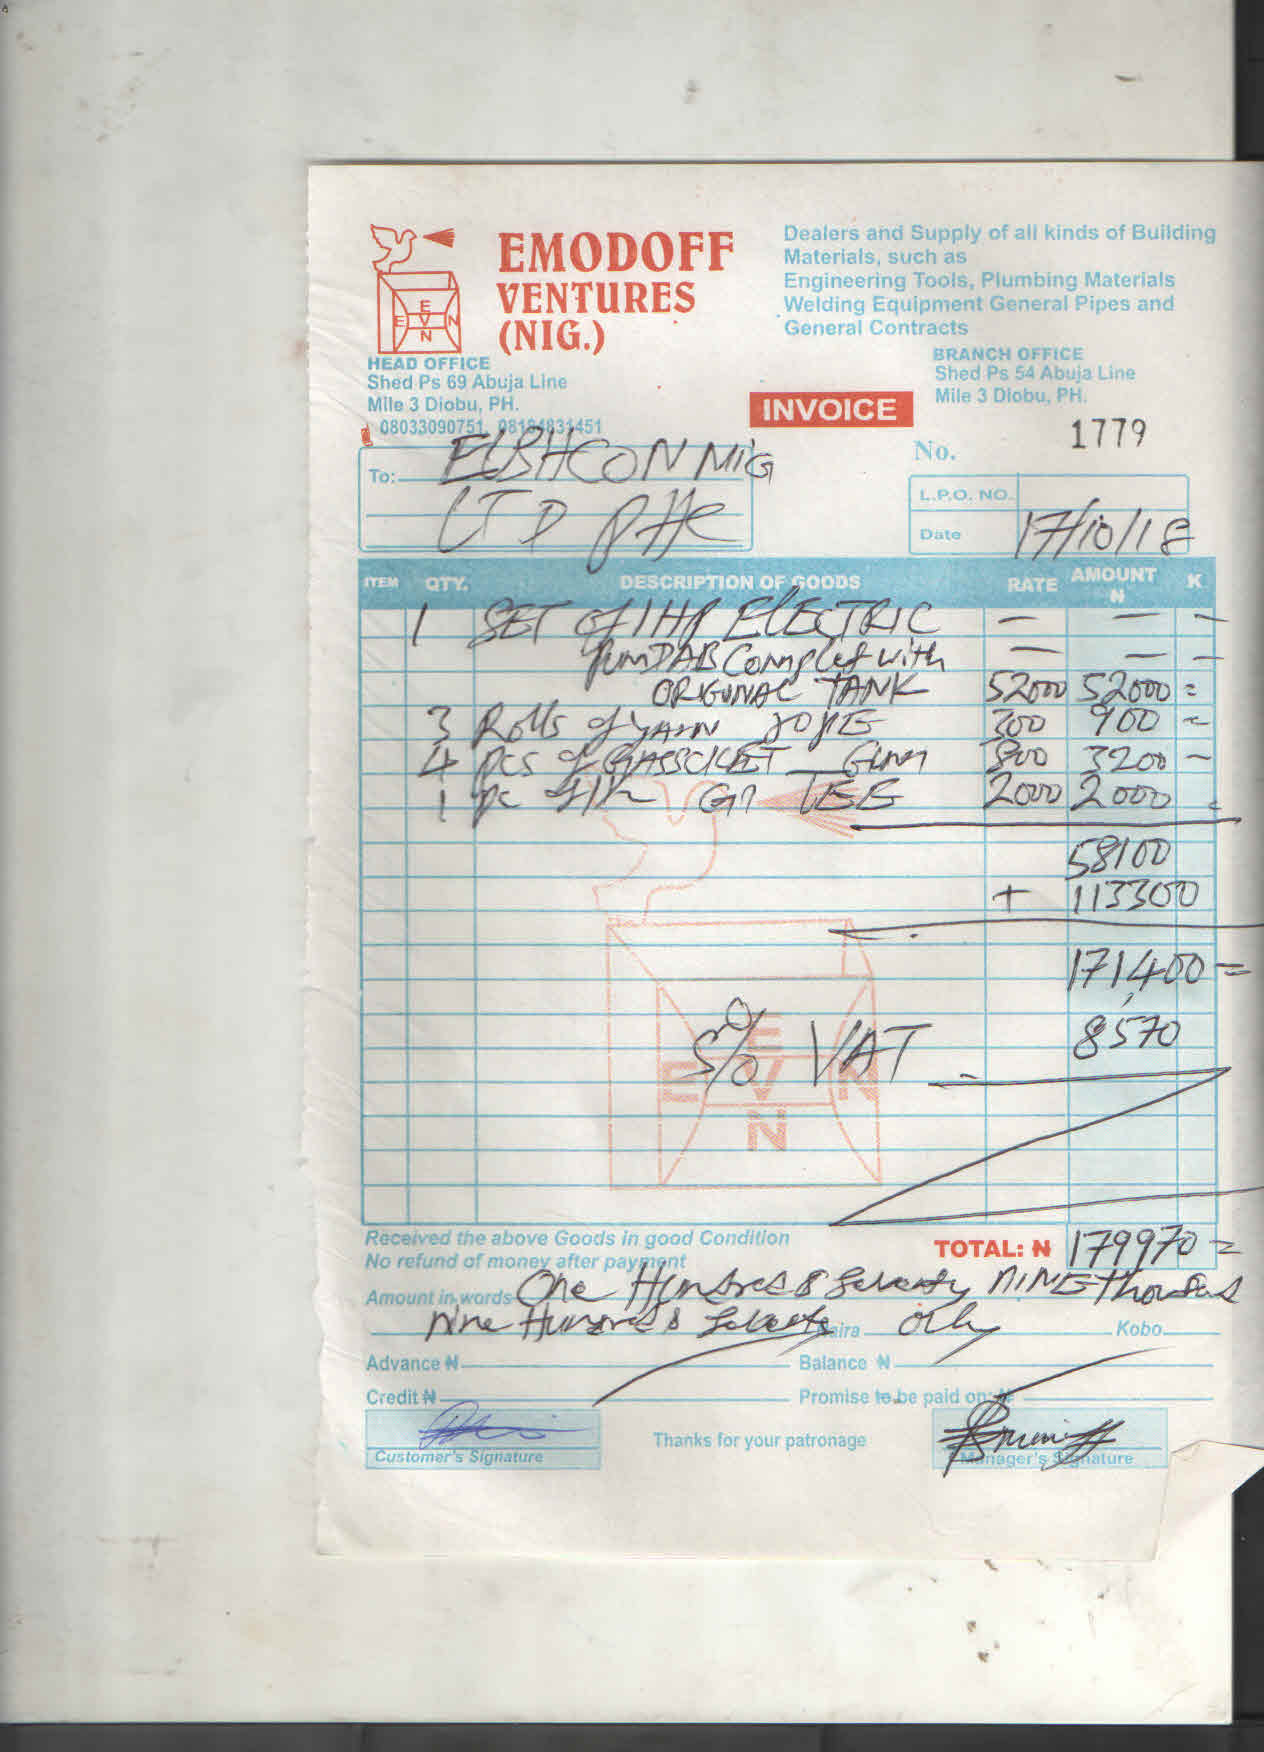 EMODOFF
VENTURES
(NIG.)
Dealers and Supply of all kinds of Building
Materials, such as
Engineering Tools, Plumbing Materials
Welding Equipment General Pipes and
General Contracts
E
E V N
N
HEAD OFFICE
Shed Ps 69 Abuja Line
Mile 3 Diobu, PH.
08033090751, 08184831451
BRANCH OFFICE
Shed Ps 54 Abuja Line
Mile 3 Diobu, PH.
INVOICE
No. 1779
To: NIG
LTD PHC
L.P.O. NO.
Date 17/10/18
ITEM QTY. DESCRIPTION OF GOODS RATE AMOUNT ₦ K
1 SET of 1HP ELECTRIC — — —
complet with — — —
ORIGINAL TANK 52000 52000 =
3 Rolls of 300 900 =
4 pcs of Gum 800 3200 —
1 pc of GI TEE 2000 2000
58100
+ 113300
171,400 =
5% VAT 8570
E
E V N
N
Received the above Goods in good Condition
No refund of money after payment
TOTAL: ₦ 179970 =
Amount in words One Hundred & Seventy NINE thousand
Nine Hundred & Seventy Naira only Kobo
Advance ₦ Balance ₦
Credit ₦ Promise to be paid on: ₦
Customer's Signature
Thanks for your patronage
Manager's Signature